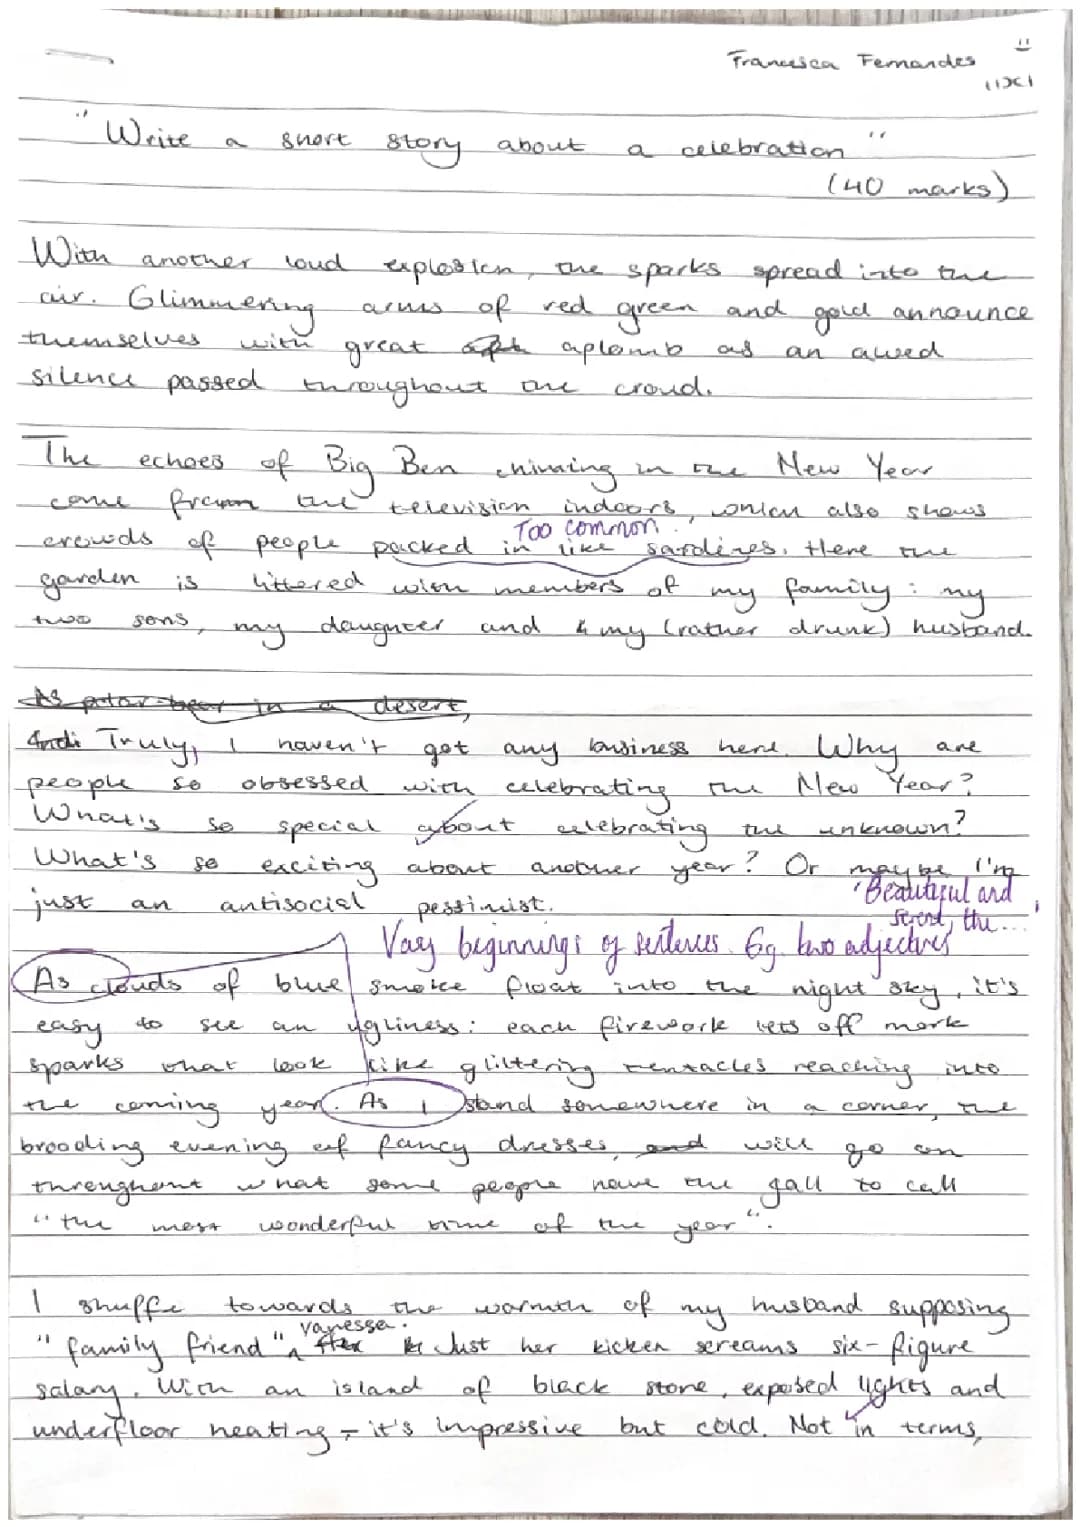 Francesca Fernandes
11X1
"Write a short story about a celebration"
(40 marks)
With another loud explosion, the sparks spread into the
air. Glimmering arms of red green and gold announce
themselves with great aplomb as an awed
silence passed throughout the croud.
The echoes of Big Ben chiming in the New Year
come from the television indoors, which also shows
Too common.
crowds of people packed in like sardines. Here the
garden is littered with members of my family: my
two sons, my daughter and my (rather drunk) husband.
As polar bear in a desert,
Truly, I haven't got any business here. Why are
people so obsessed with celebrating the New Year?
What's so special about celebrating the unknown?
What's so exciting about another year? Or maybe I'm
just an antisocial pessimist.
'Beautiful and
the...
Vary beginnings of sentences. Eg. two adjectives
As clouds of blue smoke float into the night sky, it's
easy to see an ugliness: each firework lets off mork
sparks that look like glittering tentacles reaching into
the coming year. As I stand somewhere in a corner, the
brooding evening of fancy dresses, and will go on
throughout what some people have the gall to call
"the most wonderful time of the year".
I shuffe towards the warmth of my husband supposing
Vanessa.
"family friend" Just her kicken screams six-figure
salary. With an island of black stone, exposed lights and
underfloor heating - it's impressive but cold. Not in terms,